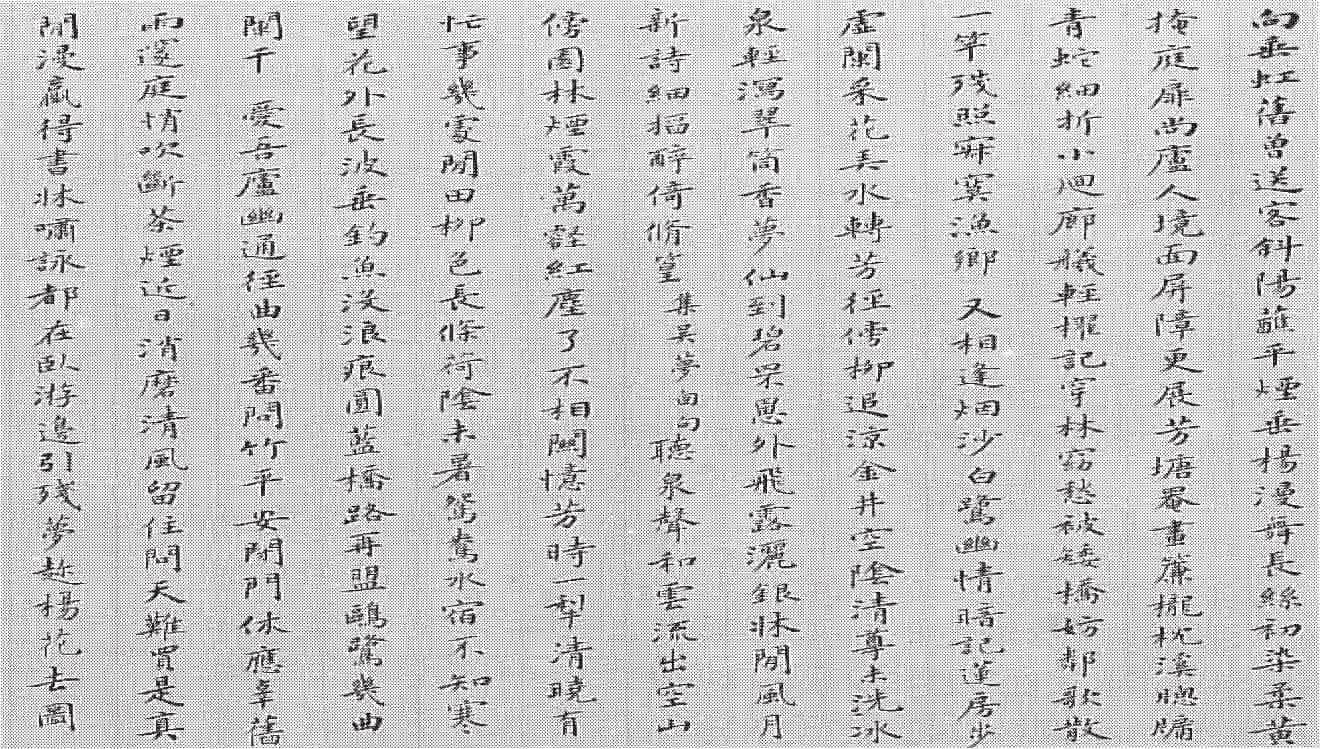 向垂虹舊曾送客斜陽蘸平煙垂楊漫舞長絲初染柔黃
掩庭扉尚廬人境面屏障更展芳塘罨畫簾櫳枕溪牕牖
青蛇細折小迴廊艤輕櫂記穿林窈愁被矮橋妨鄰歌散
一竿殘照寂寞漁鄉 又相逢烟沙白鷺幽情暗記蓮房步
虛闌采花弄水轉芳徑傍柳追涼金井空陰清尊未洗冰
泉輕瀉翠筒香夢仙到碧罘罳外飛露灑銀牀閒風月
新詩細搯醉倚脩篁 集吳夢窗句 聽泉聲和雲流出空山
傍園林煙霞萬壑紅塵了不相關憶芳時一犁清曉有
忙事幾處閒田柳色長條荷陰未暑鴛鴦水宿不知寒
望花外長波垂釣魚沒浪痕圓藍橋路再盟鷗鷺幾曲
闌干 愛吾廬幽通徑曲幾番問竹平安閉門休應辜舊
雨邃庭悄吹斷茶煙近日消磨清風留住問天難買是真
閒漫贏得書牀嘯詠都在臥游邊引殘夢趁楊花去圖